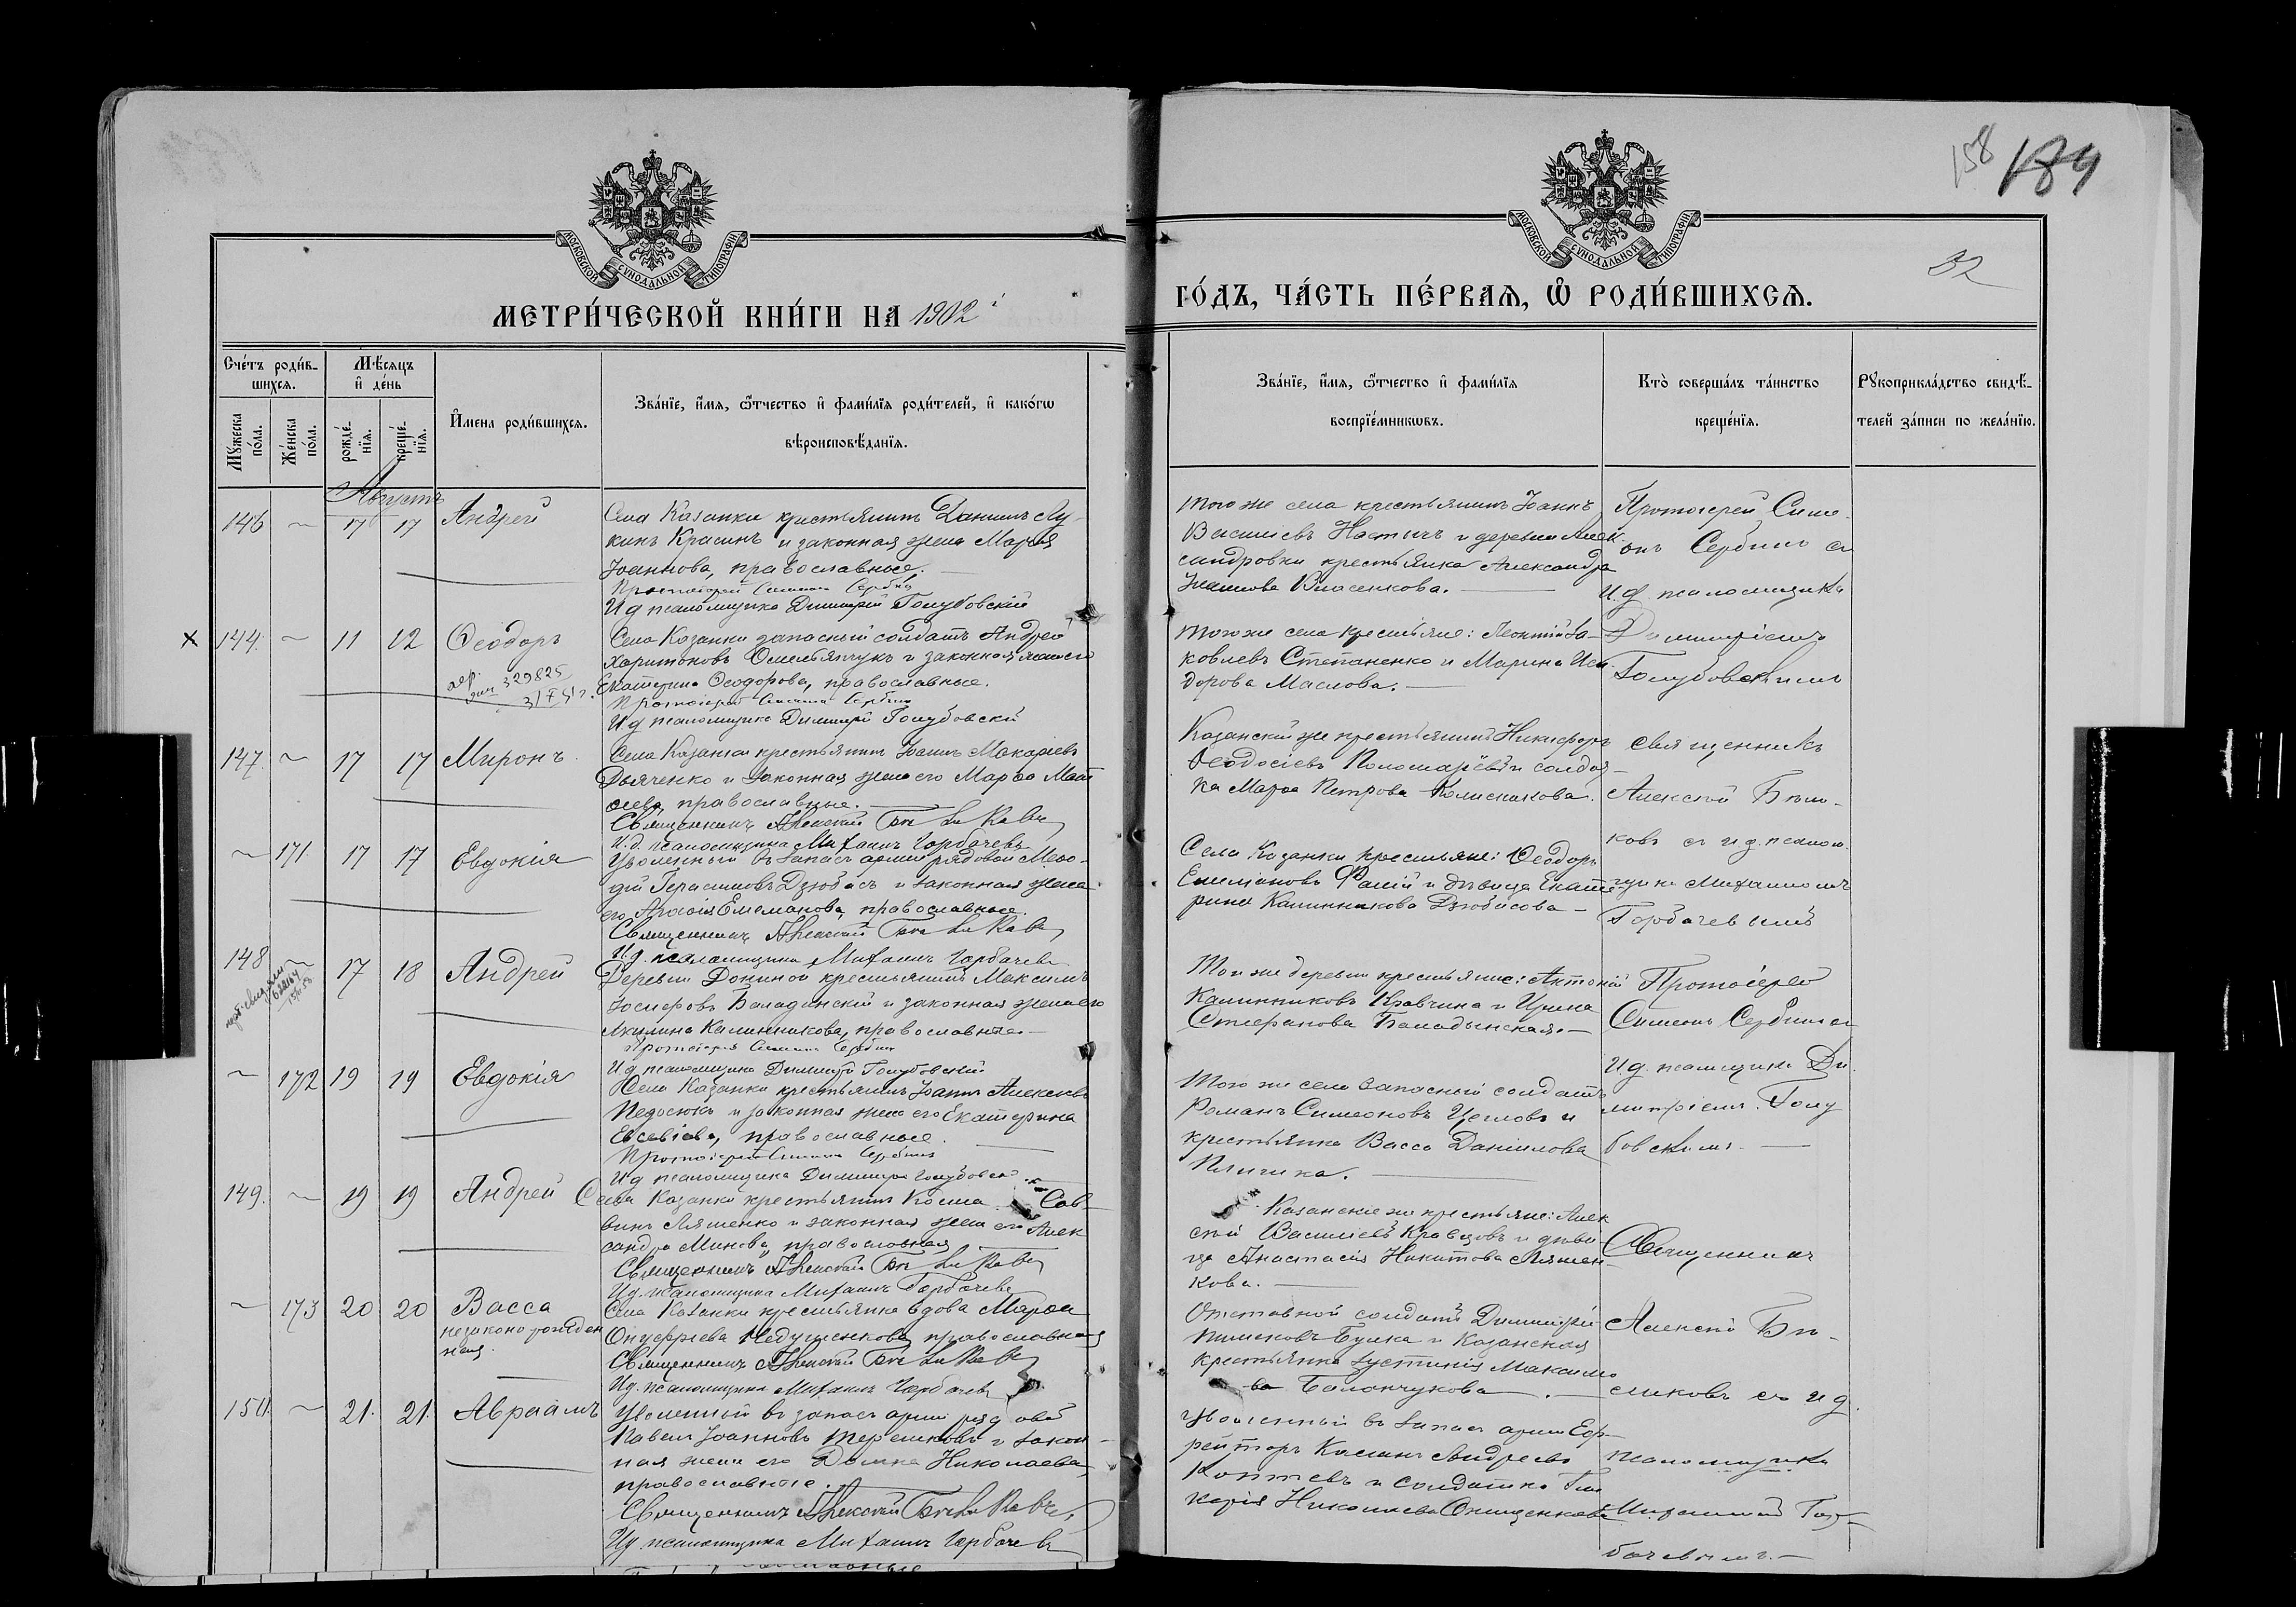 158 184
32
МОСКОВСКОЙ СѴНОДАЛЬНОЙ ТИПОГРАФІИ
МОСКОВСКОЙ СѴНОДАЛЬНОЙ ТИПОГРАФІИ
МЕТРИ́ЧЕСКОЙ КНИ́ГИ НА 1902 й
ГО́ДЪ, ЧА́СТЬ ПЕ́РВАѦ, Ѽ РОДИ́ВШИХСѦ.
Сче́тъ роди́в-
шихсѧ.
Мѣ́сѧцъ
и҆ де́нь
Мꙋ́жеска по́ла.
Же́нска по́ла.
рожде́-
нїѧ.
креще́-
нїѧ.
И҆мена роди́вшихсѧ.
Зва́нїе, и҆́мѧ, ѻ҆́тчество и҆ фами́лїѧ роди́телей, и҆ како́гѡ
вѣроисповѣ́данїѧ.
Зва́нїе, и҆́мѧ, ѻ҆́тчество и҆ фами́лїѧ
воспрїе́мникѡвъ.
Кто̀ соверша́лъ та́инство
креще́нїѧ.
Рꙋкоприкла́дство свидѣ́-
телей за́писи по жела́нїю.
Августъ
146 ~ 17 17 Андрей
Села Казанки крестьянинъ Даніилъ Лу-
кинъ Красинъ и законная жена Марія
Іоаннова, православные.
Протоіерей Симеонъ Сербинъ
И д псаломщика Димитрій Голубовскій
Того же села крестьянинъ Іоаннъ
Васильевъ Настычъ и деревни Алек-
сандровки крестьянка Александра
Власенкова.
Протоіерей Симе-
онъ Сербинъ съ
И.д. псаломщика
Димитріемъ
Голубовскимъ
× 144 ~ 11 12 Ѳеодоръ
329825
Села Казанки запасный солдатъ Андрей
Харитоновъ Омельянчукъ и законная жена его
Екатерина Ѳеодорова, православные.
Протоіерей Симеонъ Сербинъ
И д псаломщика Димитрій Голубовскій
Того же села крестьяне: Леонтій Іа-
ковлевъ Степаненко и Марина Иси-
дорова Маслова.
147 ~ 17 17 Миронъ
Села Казанки крестьянинъ Іоаннъ Макаріевъ
Дьяченко и законная жена его Марѳа Мат-
ѳеева, православные.
Священникъ Алексій Бѣликовъ
И.д. псаломщика Михаилъ Горбачевъ
Казанскій же крестьянинъ Никифоръ
Ѳеодосіевъ Пономарёвъ и солдат-
ка Марѳа Петрова
Священникъ
Алексій Бѣли-
ковъ съ и д. псалом-
щика Михаиломъ
Горбачевымъ
~ 171 17 17 Евдокія
Уволенный въ запасъ арміи рядовой Меѳо-
дій Герасимовъ Дзюбасъ и законная жена
его Агаѳія Емеліанова, православные.
Священникъ Алексій Бѣликовъ
И.д. псаломщика Михаилъ Горбачевъ
Села Казанки крестьяне: Ѳеодоръ
Емеліановъ и дѣвица Екате-
рина Калинникова Дзюбасова
148 ~ 17 18 Андрей
Деревни крестьянинъ Максимъ
Іосифовъ Баладинскій и законная жена его
Акилина Калинникова, православные.
Протоіерей Симеонъ Сербинъ
И д псаломщика Димитрій Голубовскій
Той же деревни крестьяне: Антоній
Калинниковъ Кравчина и Ирина
Стефанова Баладынская.
Протоіерей
Симеонъ Сербинъ съ
И.д. псаломщика Ди-
митріемъ Голу-
бовскимъ.
~ 172 19 19 Евдокія
Села Казанки крестьянинъ Іоаннъ Алексіевъ
и законная жена его Екатерина
Евсевіева, православные.
Протоіерей Симеонъ Сербинъ
И д псаломщика Димитрій Голубовскій
Того же села запасный солдатъ
Романъ Симеоновъ и
крестьянка Васса Даніилова
149. ~ 19 19 Андрей
Села Казанки крестьянинъ Косма Сав-
винъ Ляшенко и законная жена его Алек-
сандра Минова, православные
Священникъ Алексій Бѣликовъ
И.д. псаломщика Михаилъ Горбачевъ
Казанскіе же крестьяне: Алек-
сій Васильевъ Кравцовъ и дѣви-
ца Анастасія Никитова Ляшен-
кова.
Священникъ
Алексій Бѣ-
ликовъ съ и д
псаломщика
Михаиломъ Гор-
бачевымъ.
~ 173 20 20 Васса
незаконорожден
ная.
Села Казанки крестьянка вдова Марѳа
Онуфріева православная
Священникъ Алексій Бѣликовъ
И.д. псаломщика Михаилъ Горбачевъ
Отставной солдатъ Димитрій
Булка и Казанская
крестьянка Іустинія Максимо-
ва Баланчукова.
150. ~ 21. 21. Авраамъ
Уволенный въ запасъ арміи рядовой
Павелъ Іоанновъ Терешковъ и закон-
ная жена его Домна Николаева,
православные.
Священникъ Алексій Бѣликовъ
И.д. псаломщика Михаилъ Горбачевъ
Уволенный въ запасъ арміи Еф-
рейторъ Андреевъ
Коптевъ и солдатка Гли-
керія Николаева Онищенкова